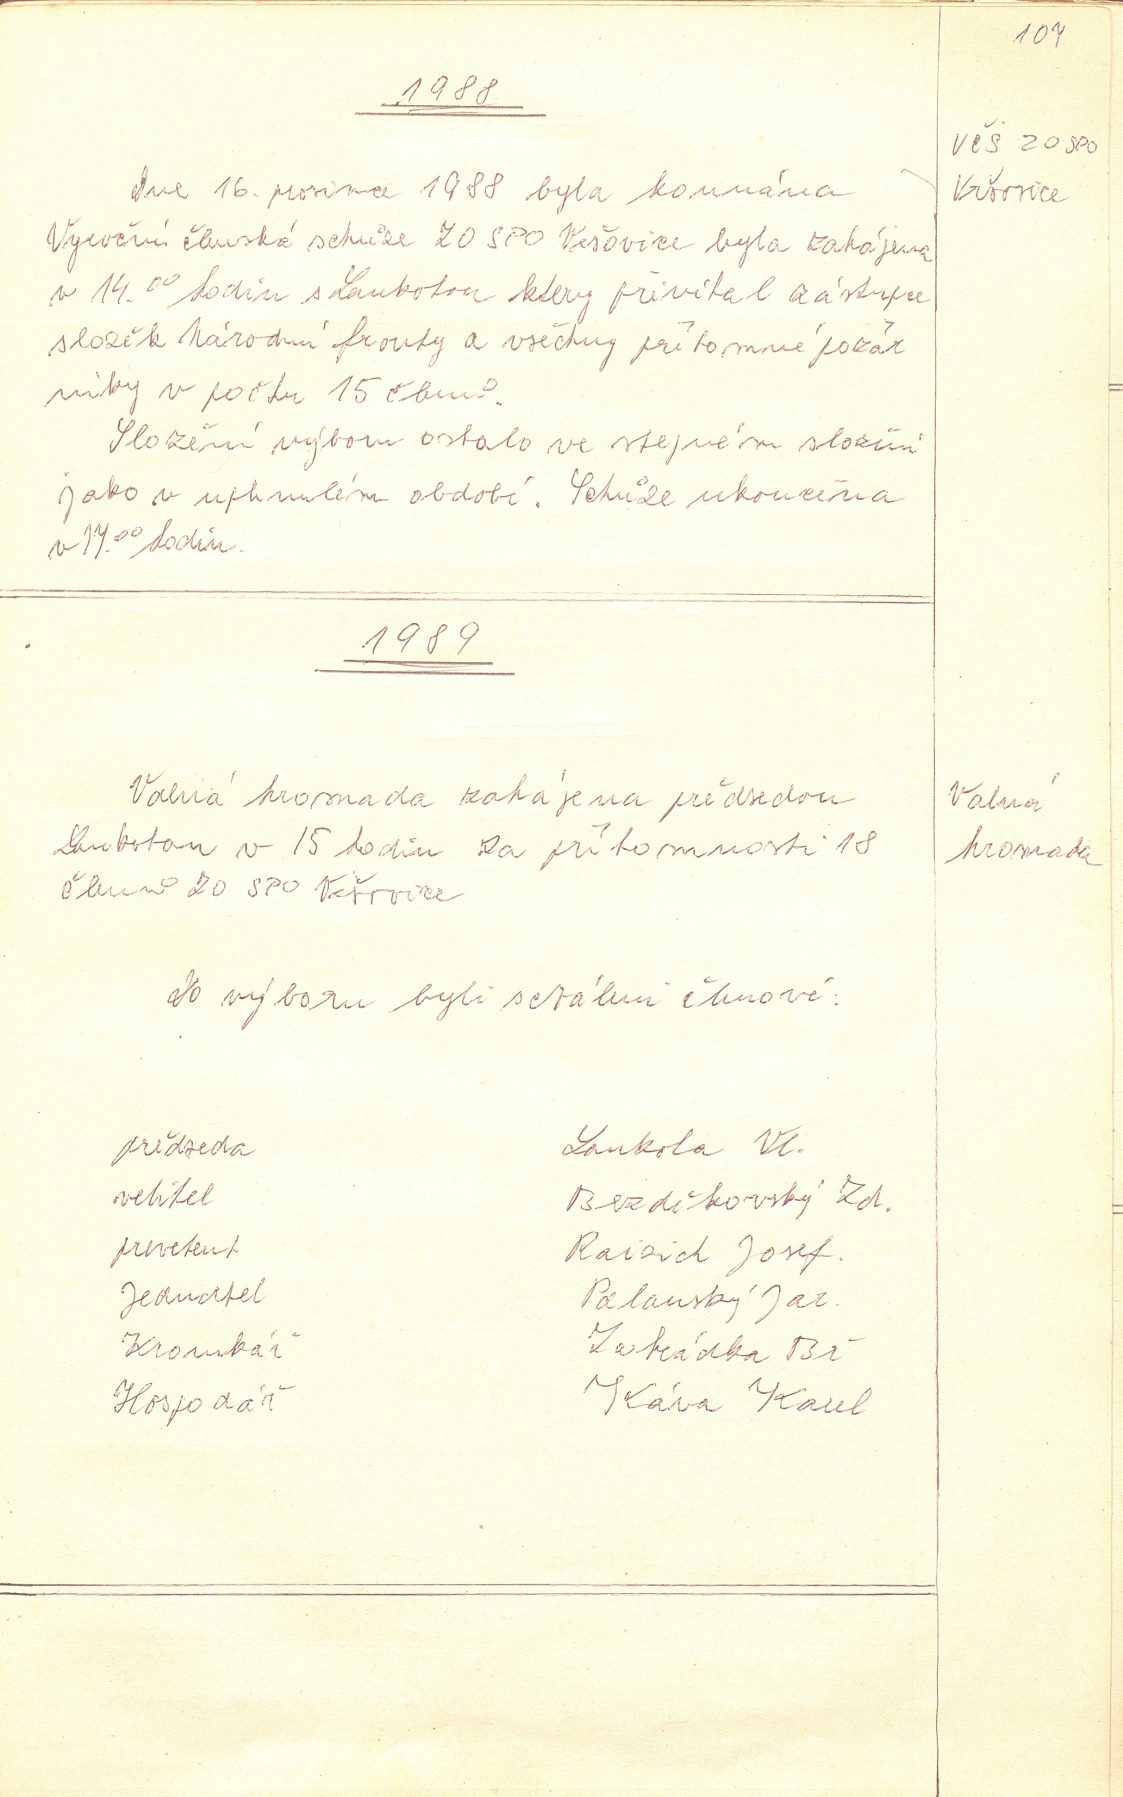 107
1988
VČS ZO SPO
Vršovice
Dne 16. prosince 1988 byla konnána
Vyroční členská schůze ZO SPO Vršovice byla zahájena
v 14.00 hodin s Loukotou ktery přivítal zástupce
složek Národní fronty a všechny přítomné požár
niky v počtu 15 členů.
Složění výboru ostalo ve stejném složení
jako v uplynulém období. Schůze ukončena
v 17.00 hodin.
1989
Valná hromada zahájena předsedou
Valná
Loukotou v 15 hodin za přítomnosti 18
hromada
členů ZO SPO Vršovice
Do výboru byli zvoleni členové:
předseda Loukota Vl.
velitel Bezděkovský Zd.
preventent Josef.
Jednatel Palanský Jar.
Kronikář Zahrádka Br
Hospodář Káva Karel